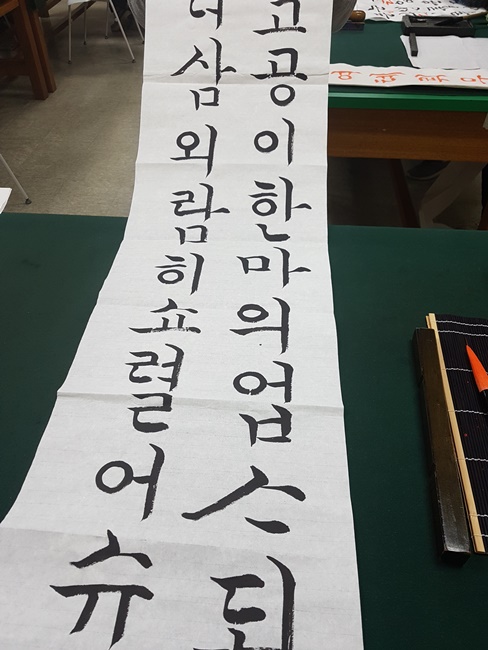 고공이한마의업스되
삼외람히쇼렬어슈